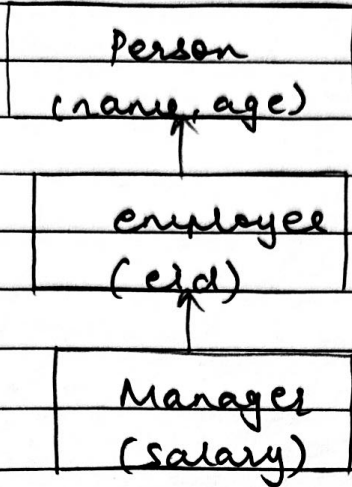 Person
(name, age)
employee
(eid)
Manager
(salary)